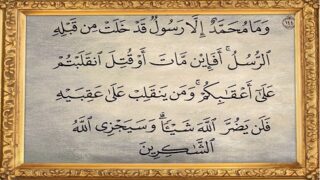 وَمَا مُحَمَّدٌ إِلَّا رَسُولٌ قَدْ خَلَتْ مِن قَبْلِهِ
الرُّسُلُ ۚ أَفَإِيْن مَّاتَ أَوْ قُتِلَ انقَلَبْتُمْ
عَلَىٰ أَعْقَابِكُمْ ۚ وَمَن يَنقَلِبْ عَلَىٰ عَقِبَيْهِ
فَلَن يَضُرَّ اللَّهَ شَيْئًا ۗ وَسَيَجْزِى اللَّهُ
الشَّاكِرِينَ